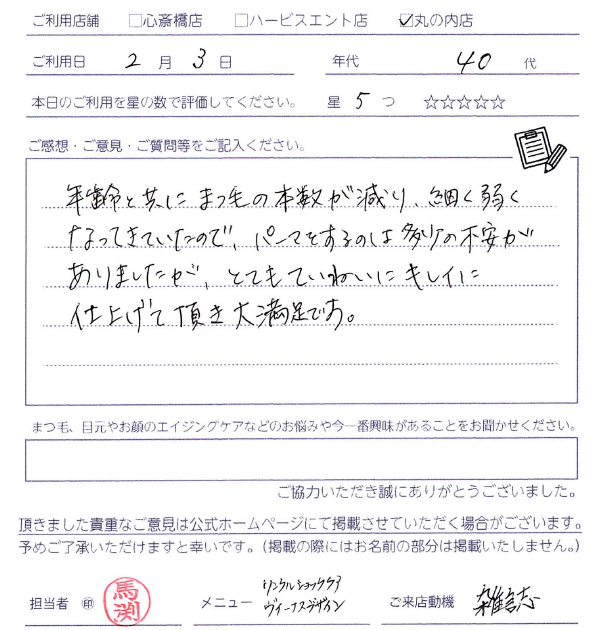 ご利用店舗 □心斎橋店 □ハービスエント店 ☑丸の内店
ご利用日 2月3日 年代 40代
本日のご利用を星の数で評価してください。 星5つ ☆☆☆☆☆
ご感想・ご意見・ご質問等をご記入ください。
年齢と共にまつ毛の本数が減り、細く弱く
なってきていたので、パーマをするのは多少の不安が
ありましたが、とてもていねいにキレイに
仕上げて頂き大満足です。
まつ毛、目元やお顔のエイジングケアなどのお悩みや今一番興味があることをお聞かせください。
ご協力いただき誠にありがとうございました。
頂きました貴重なご意見は公式ホームページにて掲載させていただく場合がございます。
予めご了承いただけますと幸いです。(掲載の際にはお名前の部分は掲載いたしません。)
担当者 ㊞ 馬渕 メニュー リンクルショックケア
ヴィーナスデザイン
ご来店動機 雑誌